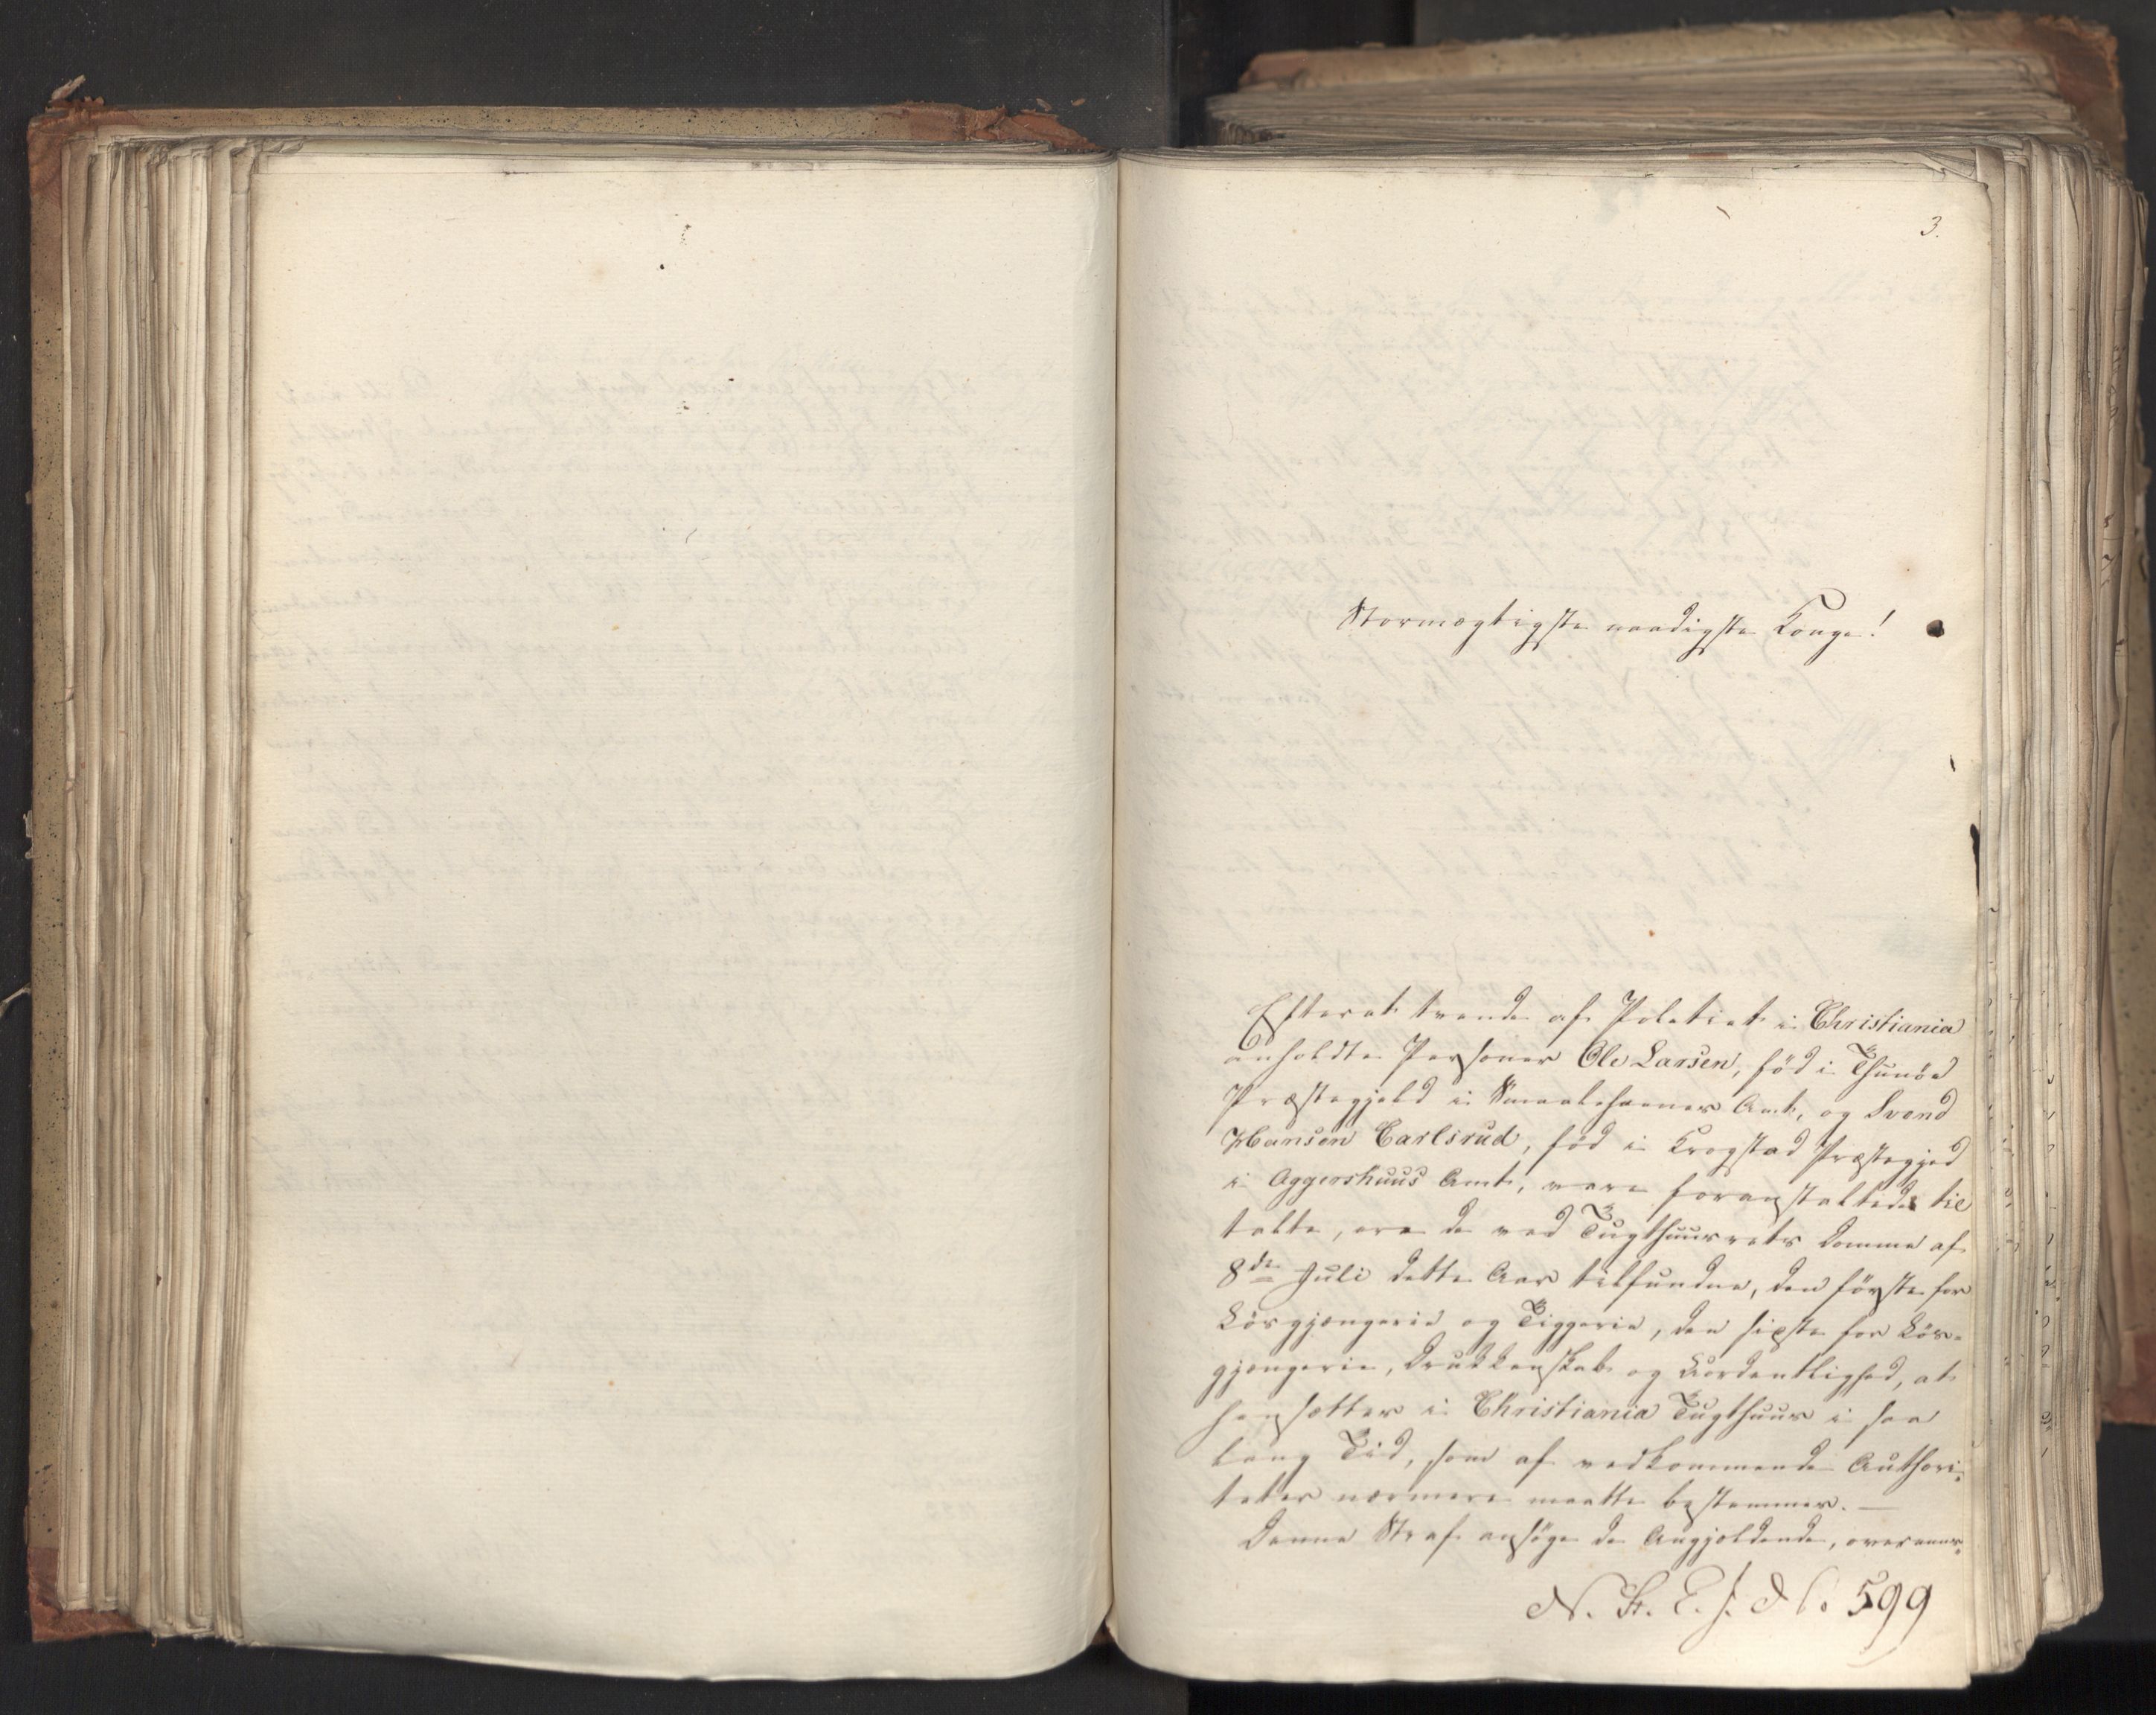 3.
Stormægtigste naadigste Konge!
Efterat tvende af Politiet i Christiania
anholdte Personer Ole Larsen, fød i Thunøe
Præstegjæld i Smaalehnenes Amt, og Svend
Hansen Carlsrud, fød i Krogstad Præstegjed
i Aggershuus Amt, vare foranstaltede til
talte, ere de ved Tugthuusrets Domme af
8de Juli dette Aar tilfundne, den første for
Løsgjængerie og Tiggerie, den sidste for Løs-
gjængerie, Drukkenskab og Uordentlighed, at
hensættes i Christiania Tugthuus i saa
lang Tid, som af vedkommende Authori-
teter nærmere maatte bestemmes. —
Denne Straf ansøge de Angjældende, overeens-
N. St. E. J. No. 599